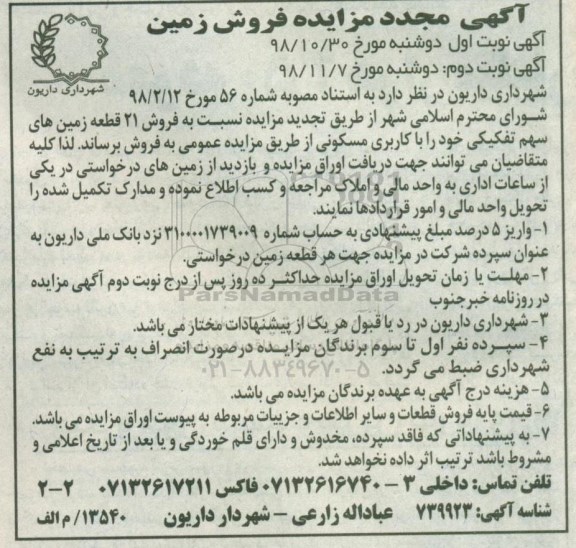 آگهی مجدد مزایده فروش زمین
آگهی نوبت اول دوشنبه مورخ ۹۸/۱۰/۳۰
آگهی نوبت دوم: دوشنبه مورخ ۹۸/۱۱/۷
شهرداری داریون
شهرداری داریون در نظر دارد به استناد مصوبه شماره ۵۶ مورخ ۹۸/۲/۱۲
شورای محترم اسلامی شهر از طریق تجدید مزایده نسبت به فروش ۲۱ قطعه زمین های
سهم تفکیکی خود را با کاربری مسکونی از طریق مزایده عمومی به فروش برساند. لذا کلیه
متقاضیان می توانند جهت دریافت اوراق مزایده و بازدید از زمین های درخواستی در یکی
از ساعات اداری به واحد مالی و املاک مراجعه و کسب اطلاع نموده و مدارک تکمیل شده را
تحویل واحد مالی و امور قراردادها نمایند.
۱- واریز ۵ درصد مبلغ پیشنهادی به حساب شماره ۳۱۰۰۰۰۱۷۳۹۰۰۹ نزد بانک ملی داریون به
عنوان سپرده شرکت در مزایده جهت هر قطعه زمین درخواستی.
۲- مهلت یا زمان تحویل اوراق مزایده حداکثر ده روز پس از درج نوبت دوم آگهی مزایده
در روزنامه خبرجنوب
ParsNamadData
۳- شهرداری داریون در رد یا قبول هر یک از پیشنهادات مختار می باشد.
۴- سپرده نفر اول تا سوم برندگان مزایده در صورت انصراف به ترتیب به نفع
شهرداری ضبط می گردد.
۰۲۱-۸۸۳۴۹۶۷۰-۵
۵- هزینه درج آگهی به عهده برندگان مزایده می باشد.
۶- قیمت پایه فروش قطعات و سایر اطلاعات و جزییات مربوطه به پیوست اوراق مزایده می باشد.
۷- به پیشنهاداتی که فاقد سپرده، مخدوش و دارای قلم خوردگی و یا بعد از تاریخ اعلامی و
مشروط باشد ترتیب اثر داده نخواهد شد.
تلفن تماس: داخلی ۳ - ۰۷۱۳۲۶۱۶۷۴۰ فاکس ۰۷۱۳۲۶۱۷۲۱۱ ۲-۲
شناسه آگهی: ۷۳۹۹۲۳ عباداله زارعی - شهردار داریون ۱۳۵۴۰/ م الف